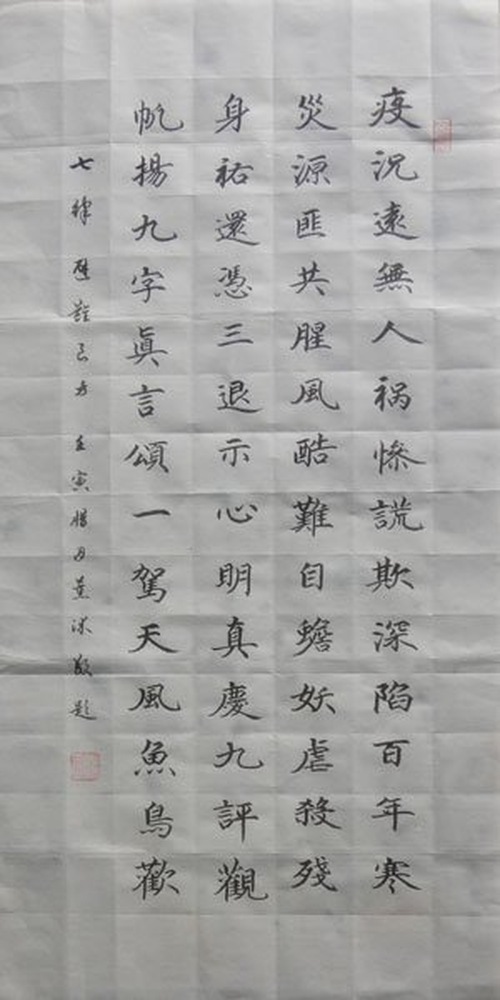 疫況遠無人祸慘謊欺深陷百年寒
災源匪共腥風酷難自蟾妖虐殺殘
身祐還憑三退示心明真慶九評觀
帆揚九字眞言頌一駕天風魚鳥歡
七律 難良方 壬寅腊月敬題